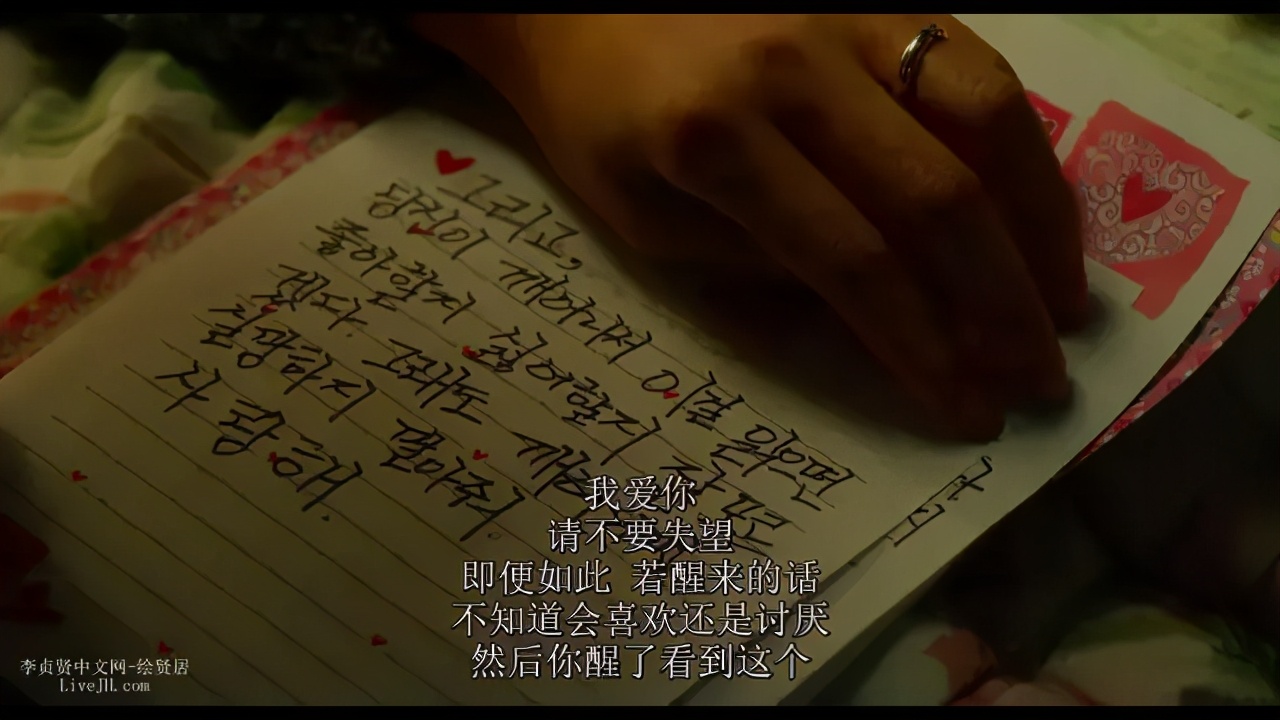 그리고,
당신이 깨어나서 이걸 읽으면
좋아할지 싫어할지
겠다. 그래도
실망하지 말아줘.
사랑해.
我爱你
请不要失望
即便如此 若醒来的话
不知道会喜欢还是讨厌
然后你醒了看到这个
李贞贤中文网-绘贤居
LiveJ11.com